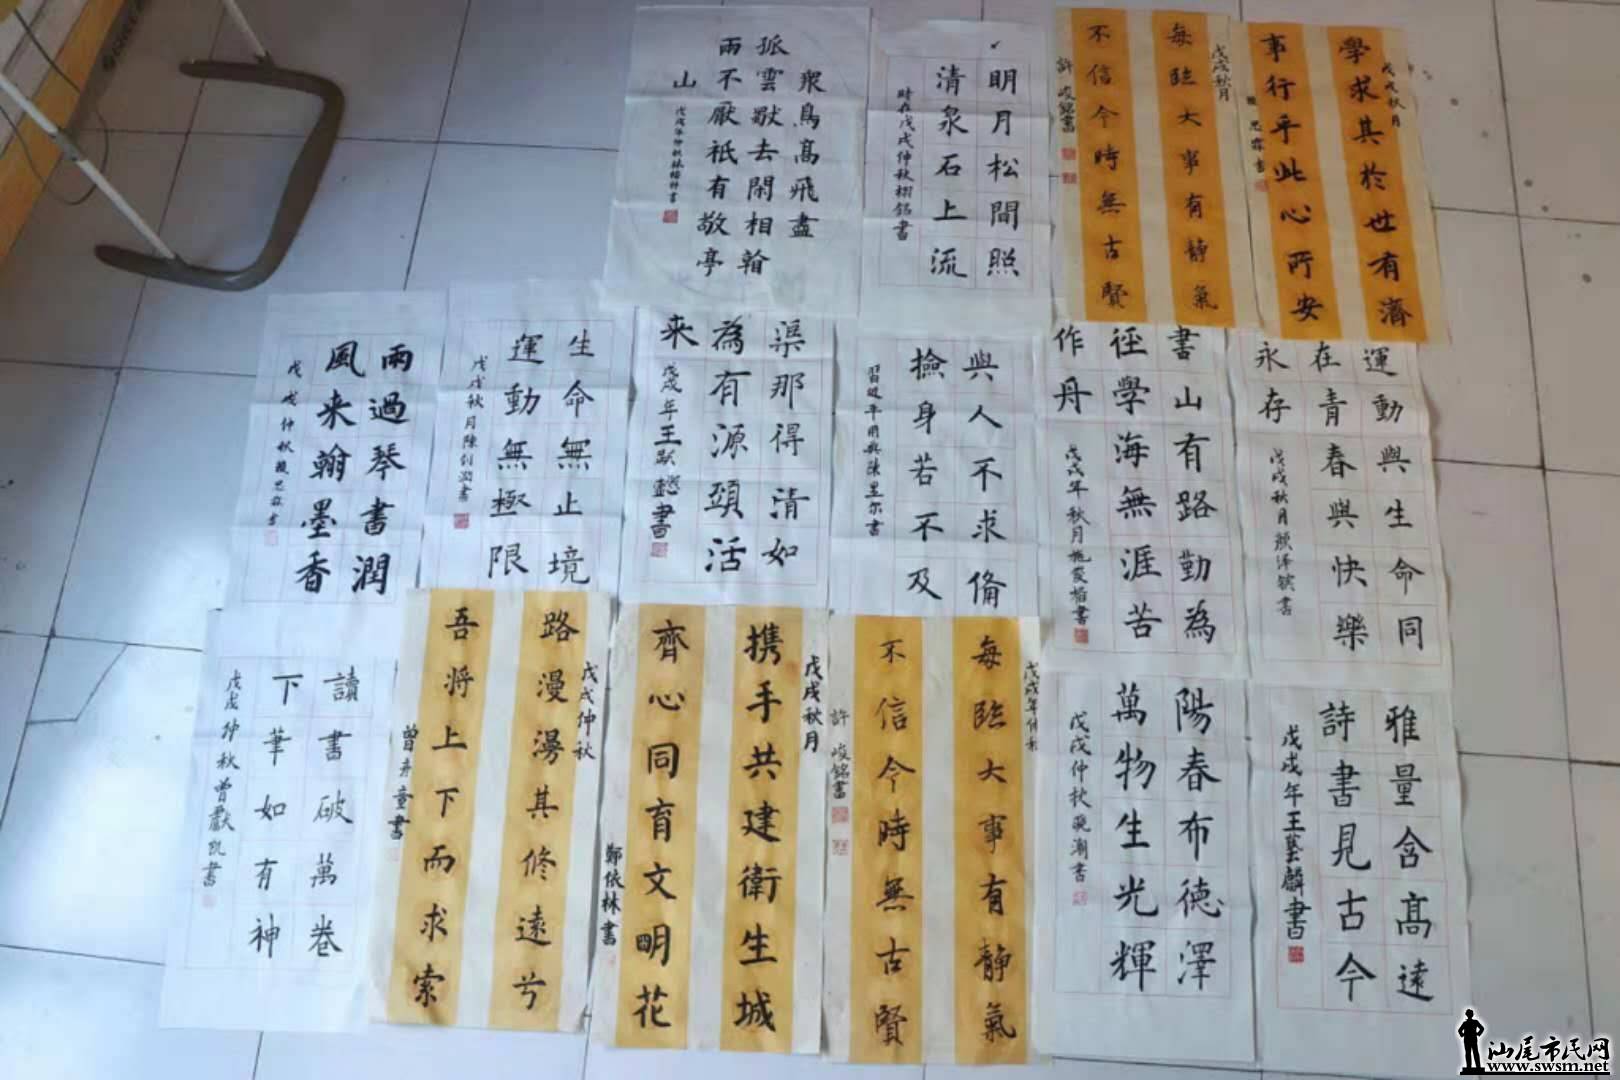 眾鳥高飛盡
孤雲獨去閑相看
兩不厭祇有敬亭
山
戊戌年仲秋林楷梓書
明月松間照
清泉石上流
時在戊戌仲秋栩銘書
戊戌秋月
每臨大事有靜氣
不信今時無古賢
許峻銘書
戊戌秋月
學求其於世有濟
事行乎此心所安
思霖書
雨過琴書潤
風来翰墨香
戊戌仲秋 思霖書
生命無止境
運動無極限
戊戌秋月陳創潤書
渠那得清如
為有源頭活
来
戊戌年王跃懿書
與人不求備
撿身若不及
習近平用典陳昱尔書
書山有路勤為
徑學海無涯苦
作丹
戊戌年秋月 書
運動與生命同
在青春與快樂
永存
戊戌秋月顏澤鋐書
讀書破萬卷
下筆如有神
戊戌仲秋曾獻凱書
戊戌仲秋
路漫漫其修遠兮
吾将上下而求索
曾奔童書
戊戌秋月
携手共建衛生城
齊心同育文明花
鄭依林書
戊戌年仲秋
每臨大事有靜氣
不信今時無古賢
許峻銘書
陽春布德澤
萬物生光輝
戊戌仲秋 潮書
雅量含高遠
詩書見古今
戊戌年王藝麟書
汕尾市民网
www.swsm.net